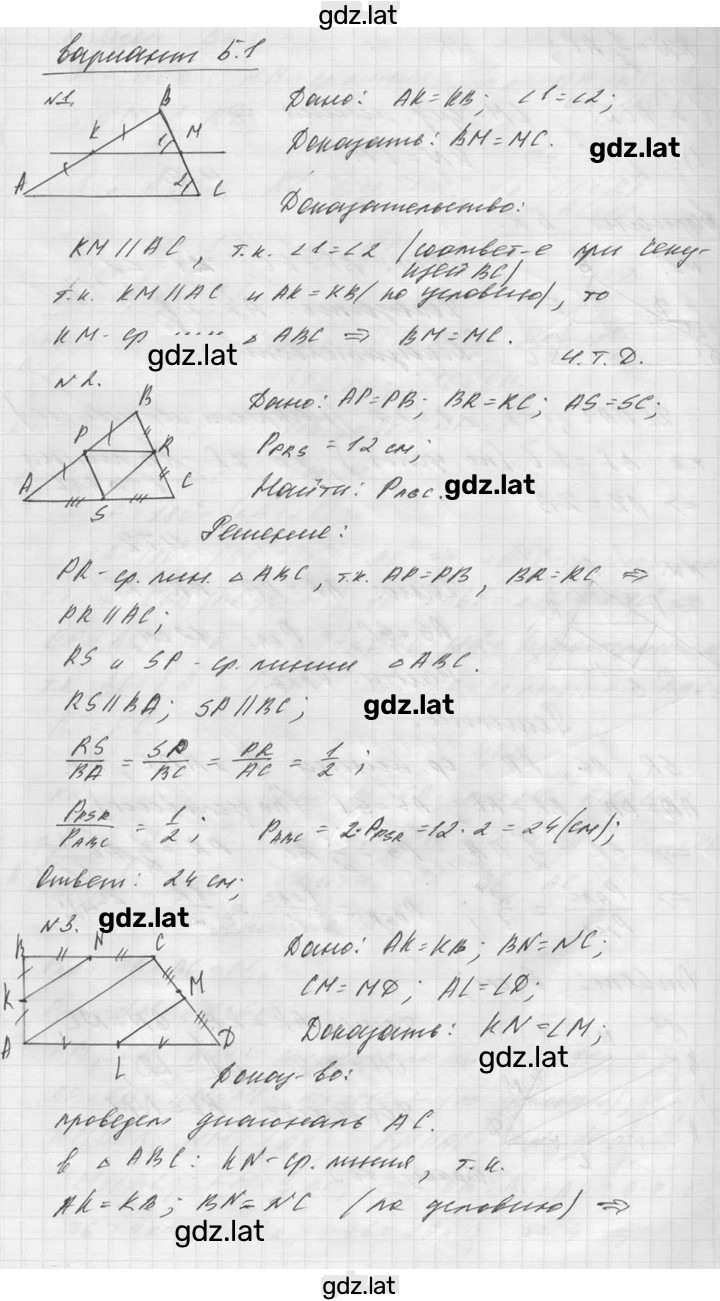 gdz.lat
вариант Б.1
№1.
Дано: AK=KB; ∠1=∠2;
Доказать: BM=MC.
gdz.lat
B
K
M
1
2
A
C
Доказательство:
KM∥AC, т.к. ∠1=∠2 (соответ-е при секу-
щей BC)
т.к. KM∥AC и AK=KB (по условию), то
KM-ср ..... △ABC ⇒ BM=MC.
gdz.lat
ч.т.д.
№2.
Дано: AP=PB; BR=RC; AS=SC;
P_PRS = 12 см;
Найти: P_ABC.
gdz.lat
B
P
R
A
S
C
Решение:
PR-ср. лин. △ABC, т.к. AP=PB, BR=RC ⇒
PR∥AC;
RS и SP-ср. линии △ABC.
RS∥BA; SP∥BC;
gdz.lat
RS/BA = SP/BC = PR/AC = 1/2;
P_PSR/P_ABC = 1/2; P_ABC = 2·P_PSR = 12·2 = 24(см);
Ответ: 24 см;
№3.
gdz.lat
B
N
C
K
M
A
L
D
Дано: AK=KB; BN=NC;
CM=MD; AL=LD;
Доказать: KN=LM;
gdz.lat
Доказ-во:
проведем диагональ AC.
в △ABC: KN-ср. линия, т.к.
AK=KB; BN=NC (по условию) ⇒
gdz.lat
gdz.lat